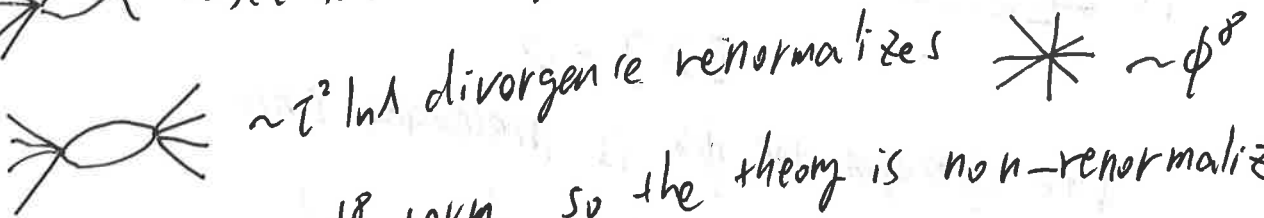 ~τ² lnΛ divorgence renormalizes ~ϕ⁸
so the theory is non-renormaliz